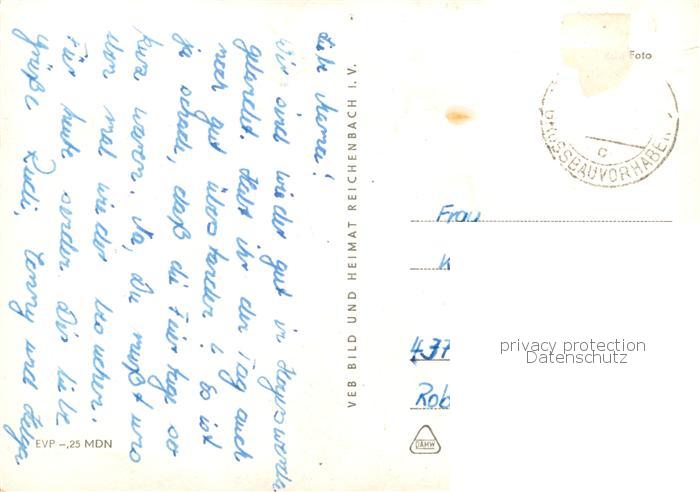 Liebe Mama!
Wir sind wieder gut in
gelandet. Habt ihr den Tag auch
noch gut überstanden? Es ist
ja schade, daß die Feiertage so
kurz waren. Ja, Du mußt uns
nun mal wieder besuchen.
Für heute senden Dir liebe
Grüße Rudi, Conny und Helga
EVP –,25 MDN
VEB BILD UND HEIMAT REICHENBACH I. V.
Foto
C
GROSSBAUVORHABEN
Frau
K
437
Rob
privacy protection
Datenschutz
DAMW